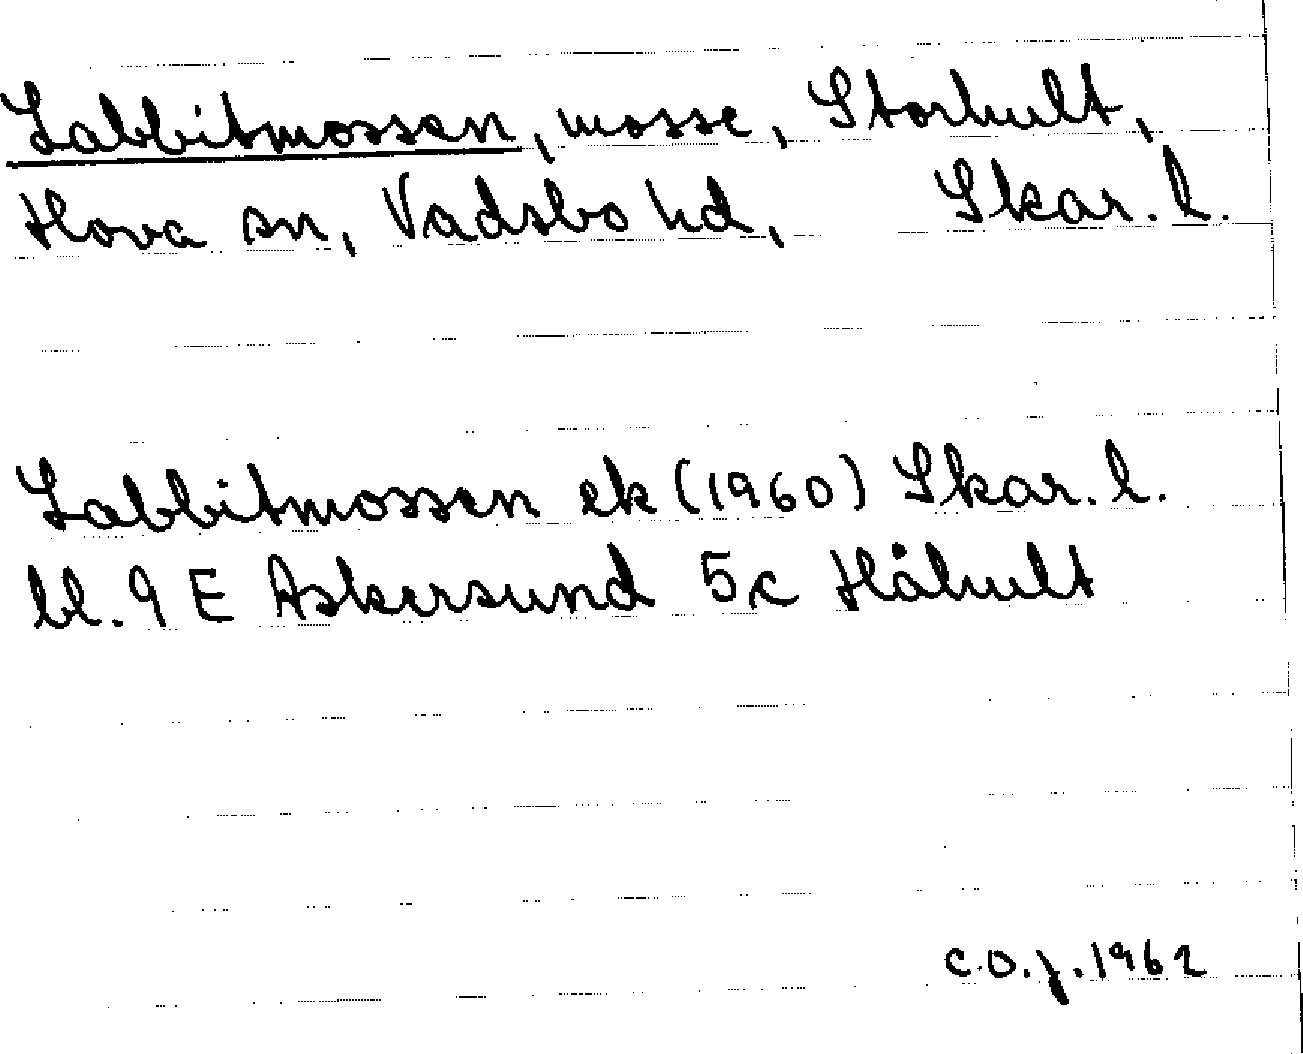 Labbitmossen, mosse, Storhult,
Hova sn, Vadsbo hd, Skar. l.
Labbitmossen ek (1960) Skar. l.
bl. 9 E Askersund 5c Håhult
C.O.J. 1962